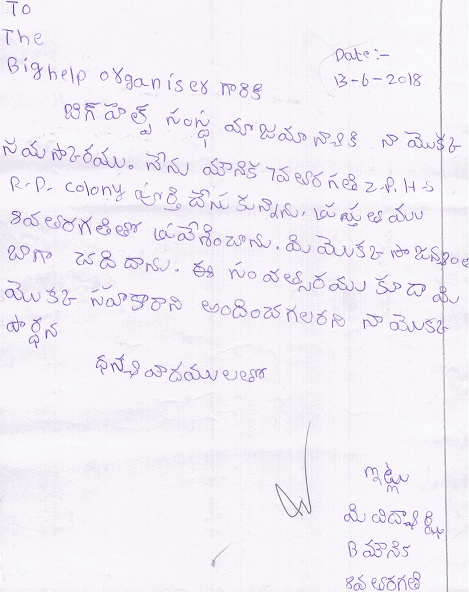 To
The
Bighelp organiser గారికి
Date:-
13-6-2018
బిగ్ హెల్ప్ సంస్థ యాజమాన్యానికి నా యొక్క
నమస్కారము. నేను మౌనిక 7వ తరగతి Z.P.H.S
R.P. colony పూర్తి చేసుకున్నాను. ప్రస్తుతము
8వ తరగతిలో ప్రవేశించాను. మీ యొక్క
బాగా చదివాను. ఈ సంవత్సరము కూడా మీ
యొక్క సహకారాని అందించగలరని నా యొక్క
ప్రార్థన
ధన్యవాదములతో
ఇట్లు
మీ విద్యార్థి
B మౌనిక
8వ తరగతి